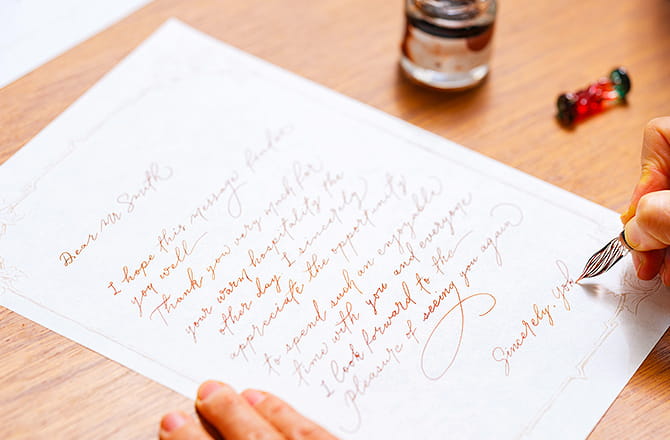 Dear Mr Smith
I hope this message finds
you well
Thank you very much for
your warm hospitality the
other day. I sincerely
appreciate the opportunity
to spend such an enjoyable
time with you and everyone
I look forward to the
pleasure of seeing you again
Sincerely, Yok